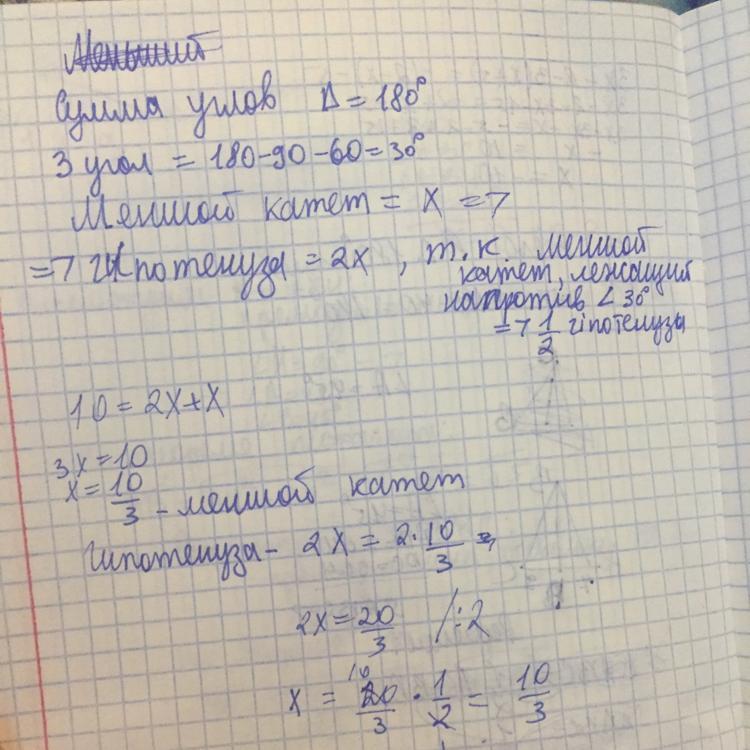 Сумма углов Δ = 180°
3 угол = 180-90-60=30°
Меншой катет = x =7
=7 гипотенуза = 2x, т.к. меншой
катет, лежащий
напротив ∠30°
=7 1/2 гіпотенузы
10 = 2x+x
3x=10
x=10/3 - меншой катет
Гипотенуза - 2x = 2·10/3 =7
2x=20/3 /:2
x = 20/3 · 1/2 = 10/3